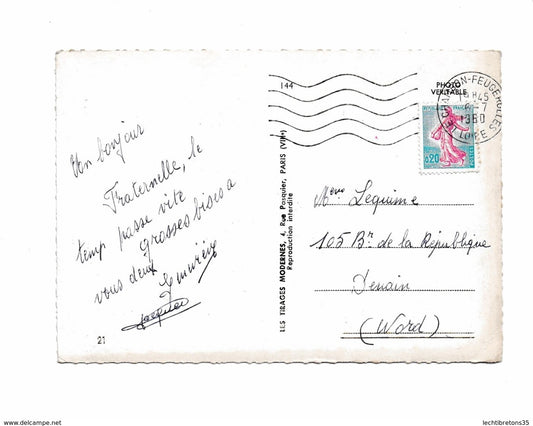 144
PHOTO
VERITABLE
LE CHAMBON-FEUGEROLLES
19H45
7
1960
LOIRE
0,20
Un bonjour
Fraternelle, le
temp passe vite
grosses bises a
vous deux
LES TIRAGES MODERNES, 4, Rue Pasquier, PARIS (VIIIe)
Reproduction interdite
Mme Lequime
105 Bd de la République
Denain
(Nord)
21
www.delcampe.net
lechtibretons35